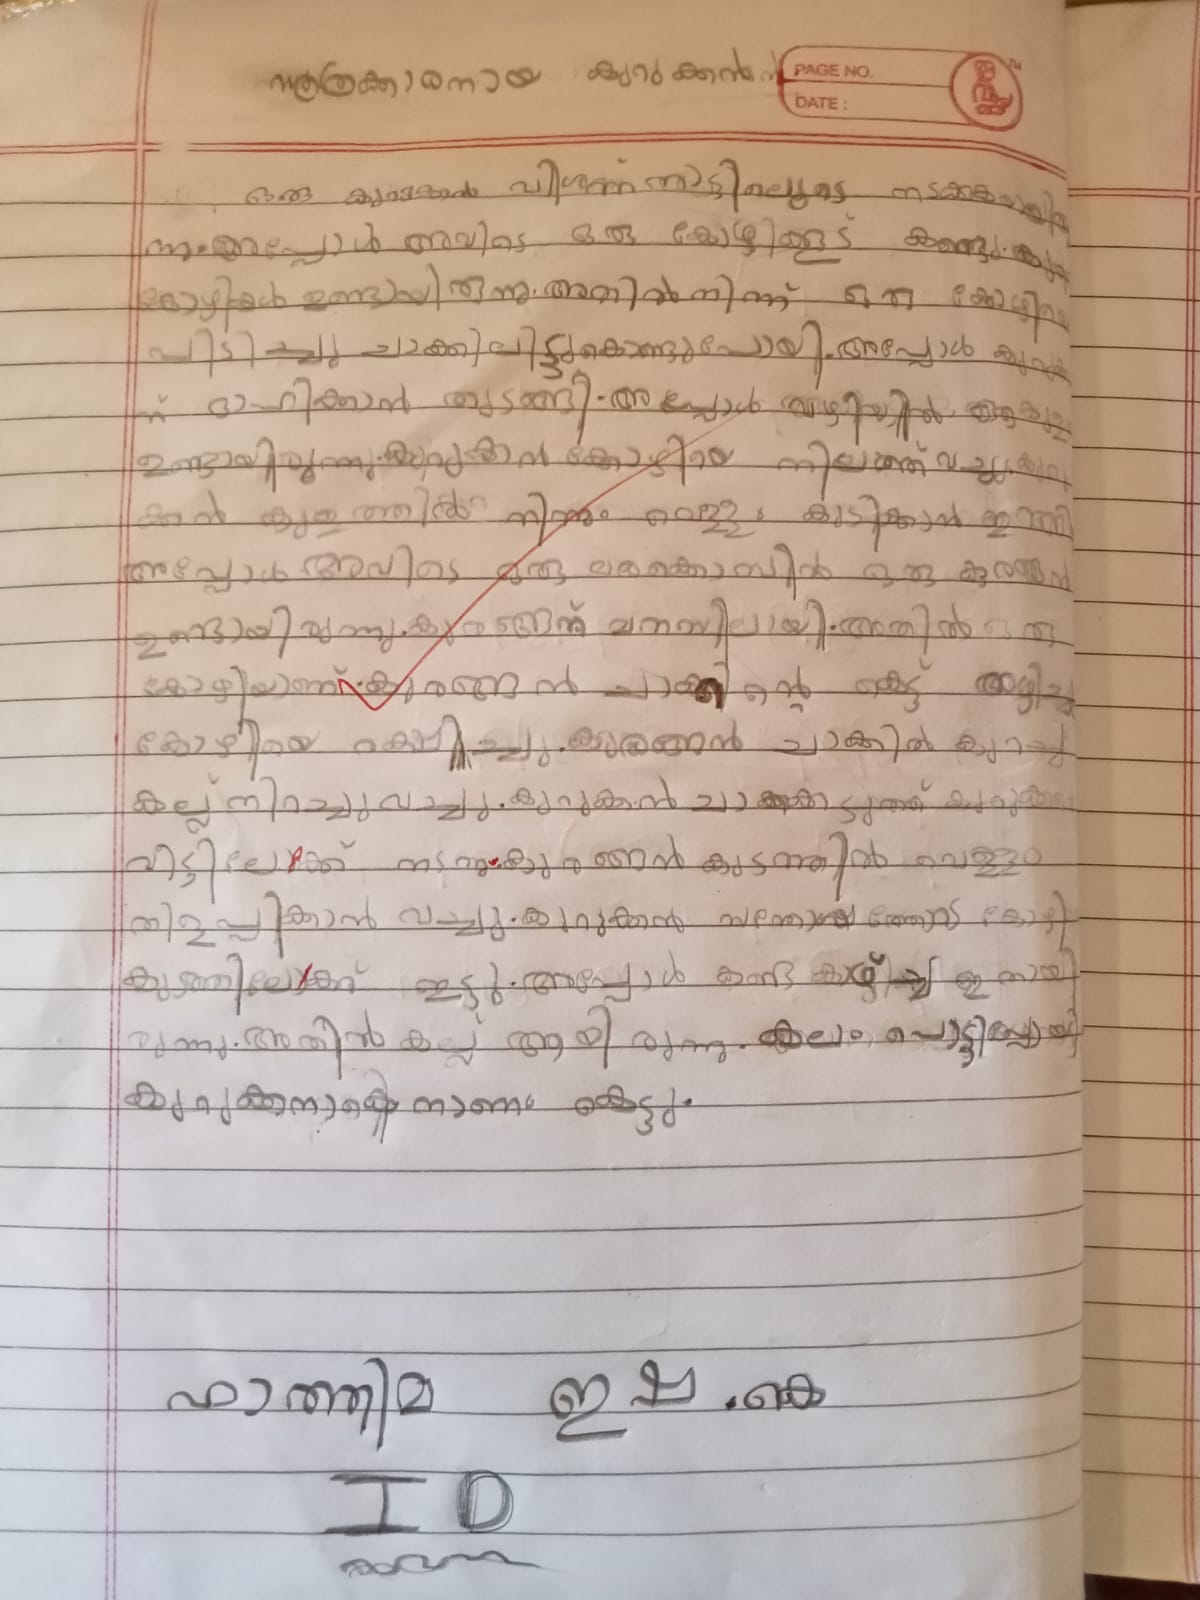 സൂത്രക്കാരനായ കുറുക്കൻ
PAGE NO.
DATE :
ഒരു കുറുക്കൻ വിശന്ന് നാട്ടിലൂടെ
അപ്പോൾ അവിടെ ഒരു കോഴിക്കൂട് കണ്ടു.
കോഴികൾ ഉണ്ടായിരുന്നു.അതിൽ നിന്ന് ഒരു
പിടിച്ചു ചാക്കിലിട്ടുകൊണ്ടുപോയി.അപ്പോൾ
ന് ദാഹിക്കാൻ തുടങ്ങി.അപ്പോൾ വഴിയിൽ
ഉണ്ടായിരുന്നു.കുറുക്കൻ കോഴിയെ നിലത്ത് വച്ചു.
ക്കൻ കുളത്തിൽ നിന്നും വെള്ളം കുടിക്കാൻ ഇറങ്ങി
അപ്പോൾ അവിടെ ഒരു മരക്കൊമ്പിൽ ഒരു കുരങ്ങൻ
ഉണ്ടായിരുന്നു.കുരങ്ങന് മനസ്സിലായി.അതിൽ ഒരു
കോഴിയാണ്.കുരങ്ങൻ ചാക്കിന്റെ കെട്ട് അഴിച്ച്
കോഴിയെ രക്ഷിച്ചു.കുരങ്ങൻ ചാക്കിൽ കുറച്ച്
കല്ല് നിറച്ചുവച്ചു.കുറുക്കൻ
വീട്ടിലേക്ക് നടന്നു.കുറുക്കൻ കുടത്തിൽ വെള്ളം
തിളപ്പിക്കാൻ വച്ചു.കുറുക്കൻ സന്തോഷത്തോടെ കോഴി
കുടത്തിലേക്ക് ഇട്ടു.അപ്പോൾ കണ്ട കാഴ്ച്ച ഇതായി
രുന്നു.അതിൽ കല്ല് ആയിരുന്നു. കലം പൊട്ടിപ്പോയി
കുറുക്കനാകെ നാണം കെട്ടു.
ഫാത്തിമ ഇഷ.കെ
I D